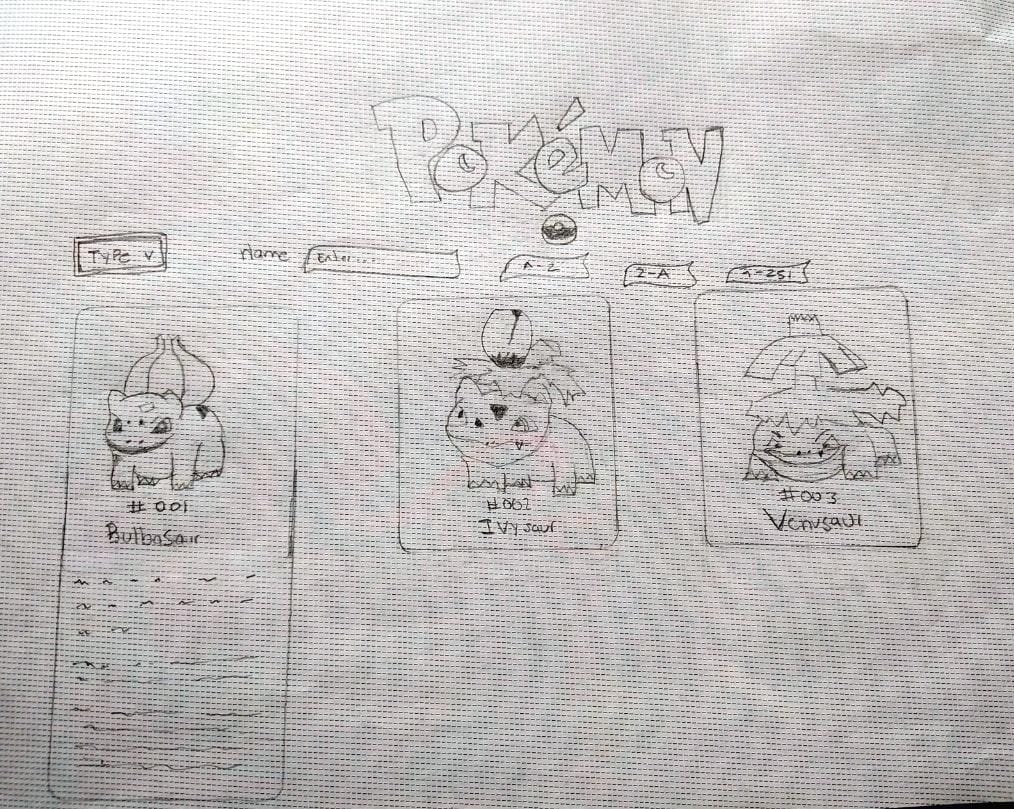 POKéMON
TYPE v
Name Enter...
A-Z
Z-A
1-251
#001
Bulbasaur
#002
IVysaur
#003
Venusaur